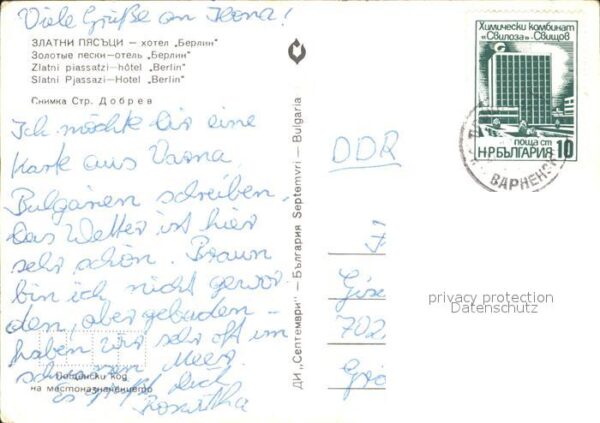 Viele Grüße an Ilona!
ЗЛАТНИ ПЯСЪЦИ — хотел „Берлин"
Золотые пески—отель „Берлин"
Zlatni piassatzi—hôtel "Berlin"
Slatni Pjassazi—Hotel "Berlin"
Снимка Стр. Добрев
Ich möchte Dir eine
Karte aus Varna
Bulgarien schreiben.
Das Wetter ist hier
sehr schön. Braun
bin ich nicht gewor
den, aber gebaden -
haben wir sehr oft im
schwarzen Meer.
Es grüßt Dich
Roswitha
Пощенски код
на местоназначението
ДИ „Септември" — България Septemvri — Bulgaria
Химически комбинат
„Свилоза"-Свищов
поща ст
НРБЪЛГАРИЯ 10
ВАРНЕНСК
DDR
Gise
702
privacy protection
Datenschutz